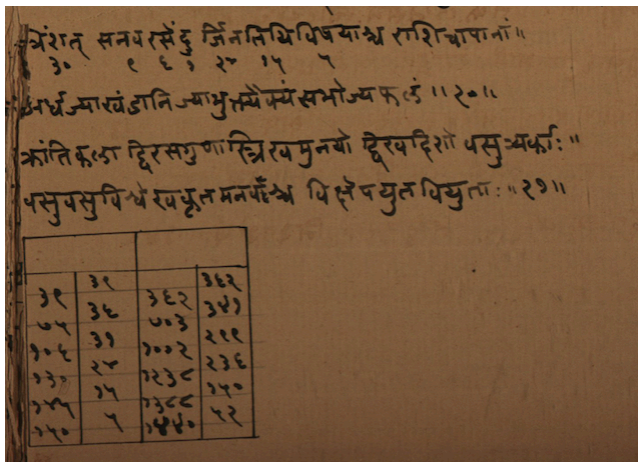 त्रिंशत् सनवरसेंदु र्जिनतिथिविषयाश्च राशिचापानां॥
३० ९ ६ १ २४ १५ ५
अर्धज्याखंडानि ज्याभुक्तैक्यं सभोज्यफलं ॥२०॥
क्रांतिकला द्विरसगुणास्त्रिखमुनयो द्विखदिशो वसुत्र्यर्काः॥
वसुवसुविश्वे खकृतमनवश्च विक्षेपयुतवियुताः॥२१॥
३९ ३९ ३६२ ३६२
७५ ३६ ७०३ ३४१
१०६ ३१ १००२ २९९
१३० २४ १२३८ २३६
१४५ १५ १३८८ १५०
१५० ५ १४४० ५२